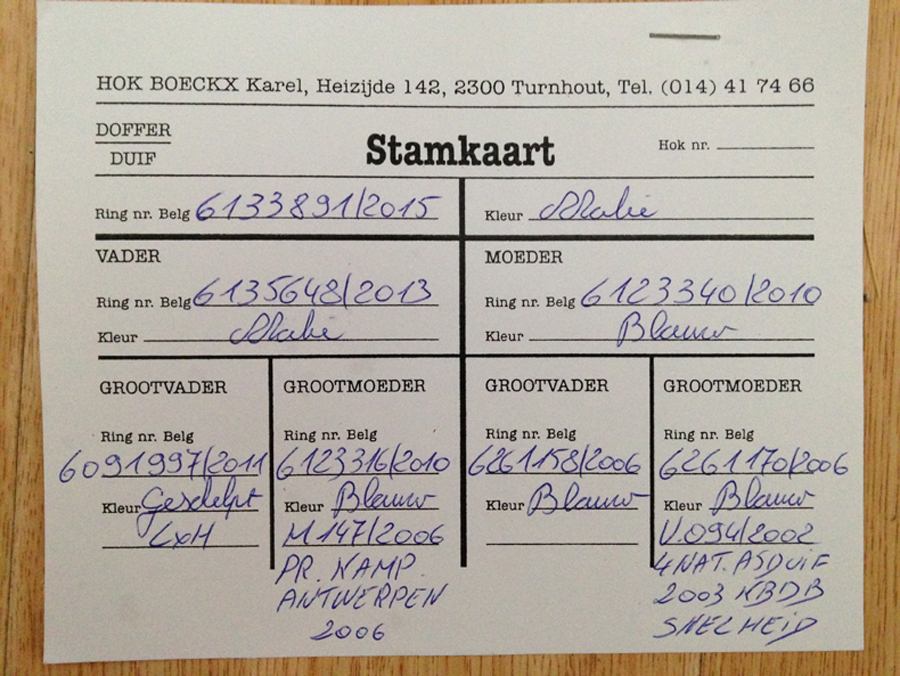 HOK BOECKX Karel, Heizijde 142, 2300 Turnhout, Tel. (014) 41 74 66
DOFFER
DUIF
Stamkaart
Hok nr.
Ring nr. Belg 6133891/2015
Kleur
VADER
Ring nr. Belg 6135648/2013
Kleur
MOEDER
Ring nr. Belg 6123340/2010
Kleur Blauw
GROOTVADER
Ring nr. Belg
6091997/2011
Kleur Geschelpt
LxH
GROOTMOEDER
Ring nr. Belg
6123316/2010
Kleur Blauw
M147/2006
PR. KAMP.
ANTWERPEN
2006
GROOTVADER
Ring nr. Belg
6261158/2006
Kleur Blauw
GROOTMOEDER
Ring nr. Belg
6261170/2006
Kleur Blauw
V.094/2002
4 NAT. ASDUIF
2003 KBDB
SNELHEID